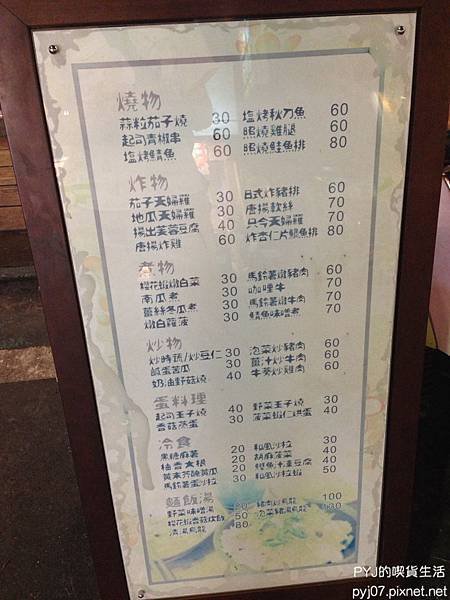 燒物
蒜粒茄子燒 30 塩烤秋刀魚 60
起司青椒串 60 照燒雞腿 60
塩烤鯖魚 60 照燒鮭魚排 80
炸物
茄子天婦羅 30 日式炸豬排 60
地瓜天婦羅 30 唐揚軟絲 70
揚出芙蓉豆腐 40 只今天婦羅 70
唐揚炸雞 60 炸杏仁片鯛魚排 80
煮物
櫻花蝦燉白菜 30 馬鈴薯燉豬肉 60
南瓜煮 30 咖哩牛 70
薑絲冬瓜煮 30 馬鈴薯燉牛肉 70
燉白蘿菠 30 鯖魚味噌煮 70
炒物
炒時蔬/炒豆仁 30 泡菜炒豬肉 60
鹹蛋苦瓜 30 薑汁炒牛肉 60
奶油野菇燒 40 牛蒡炒雞肉 60
蛋料理
起司玉子燒 40 野菜玉子燒 30
香菇蒸蛋 40 菠菜蝦仁烘蛋 40
冷食
黑糖麻薯 20 和風沙拉 30
柚香大根 20 胡麻菠菜 40
黃末芥醃黃瓜 20 鱈魚汁凍豆腐 40
馬鈴薯蛋沙拉 30 和風沙拉蝦 50
麵飯湯
野菜味噌湯 20 豬肉炒烏龍 100
櫻花蝦香菇炊飯 50 泡菜豬湯烏龍 130
清湯烏龍 80
PYJ的喫貨生活
pyj07.pixnet.net